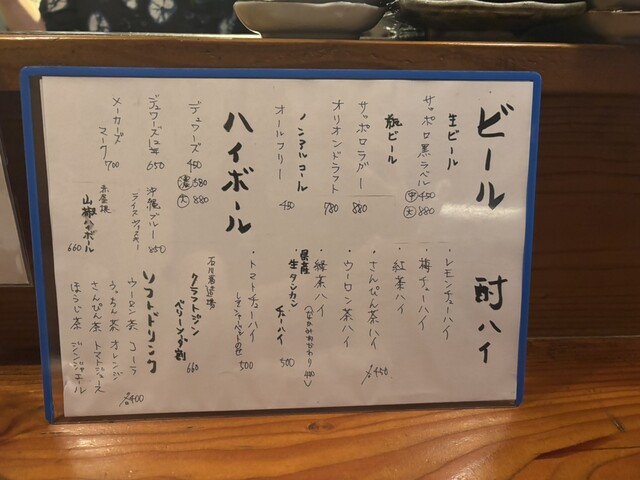 ビール
生ビール
サッポロ黒ラベル ㊥450
㊅880
瓶ビール
サッポロラガー 880
オリオンドラフト 780
ノンアルコール
オールフリー 450
ハイボール
デュワーズ 450
㊇580
㊅880
デュワーズ12年 650
メーカーズ
マーク 700
沖縄ブルー
ライスウイスキー 850
山椒ハイボール
660
酎ハイ
・レモンチューハイ
・梅チューハイ
・紅茶ハイ
・さんぴん茶ハイ
・ウーロン茶ハイ
450
・緑茶ハイ
県産
生タンカンチューハイ 500
・トマトチューハイ 500
石川酒造場
クラフトジン
ベリーソーダ割 660
ソフトドリンク
ウーロン茶 コーラ
うっちん茶 オレンジ
さんぴん茶 トマトジュース
ほうじ茶 ジンジャエール
400